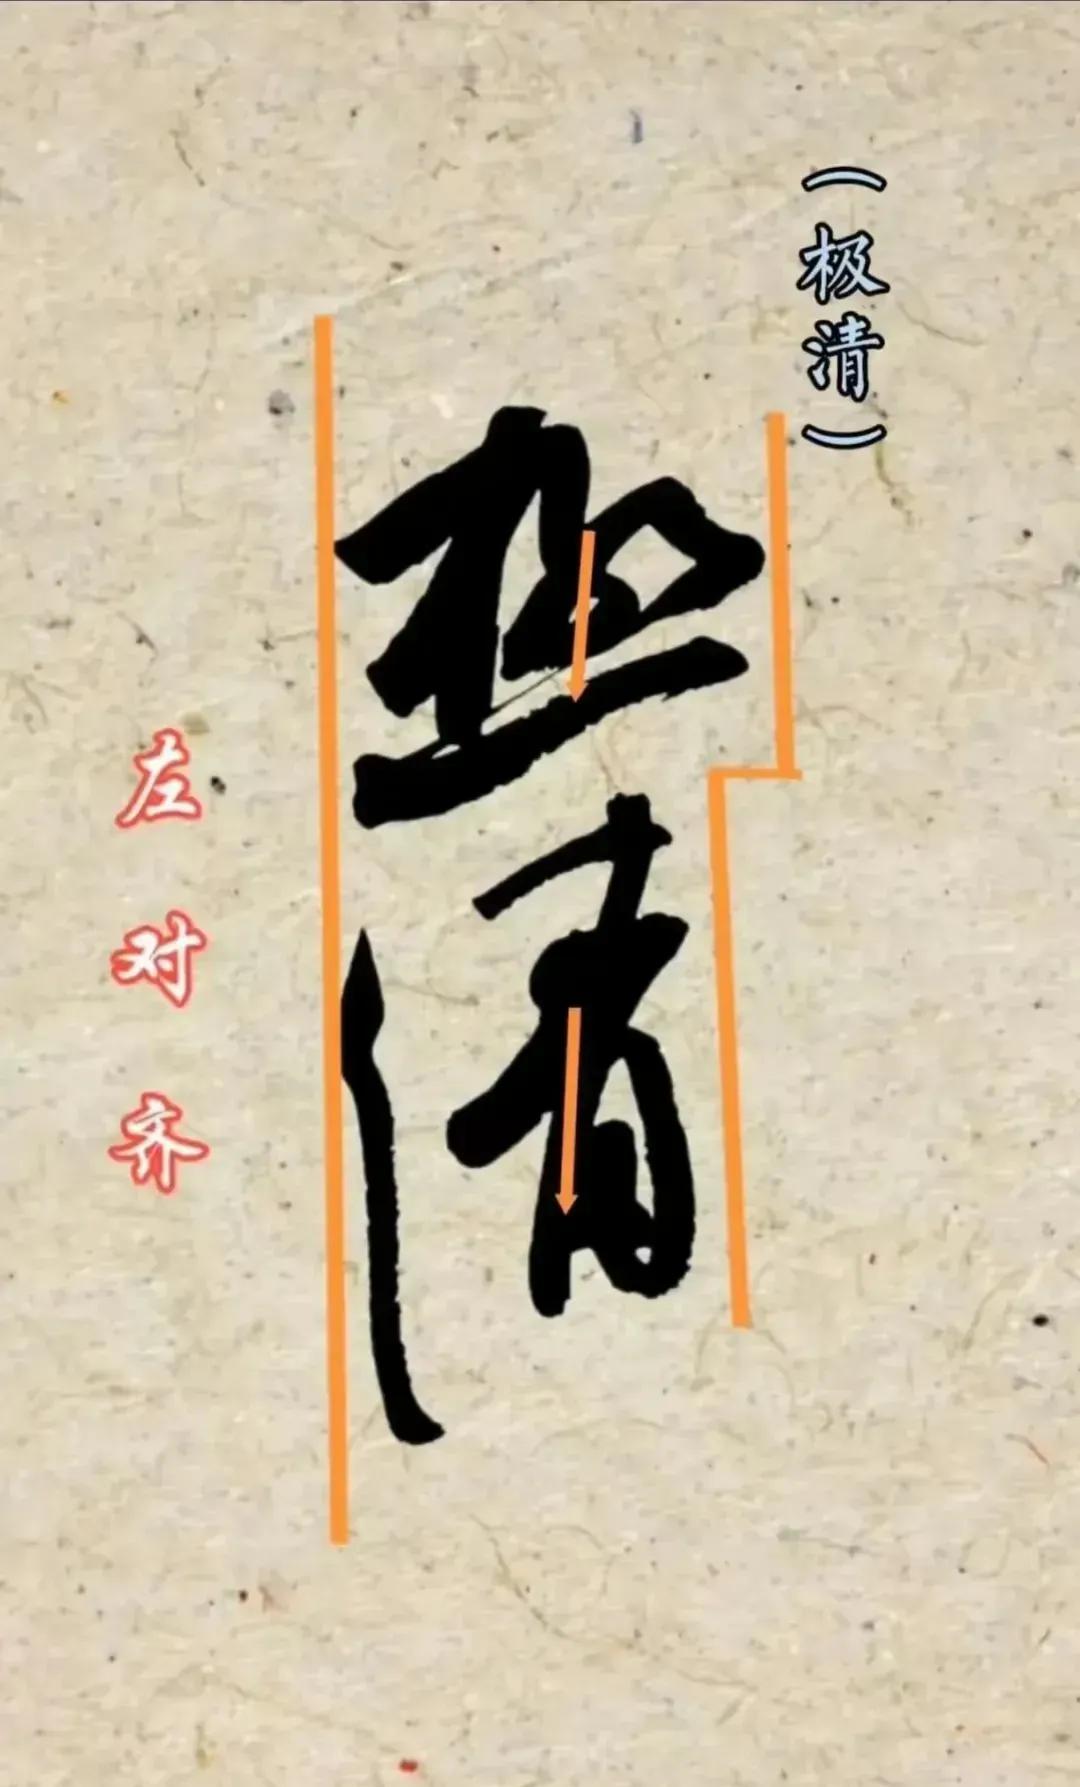 （极清）
極清
左对齐